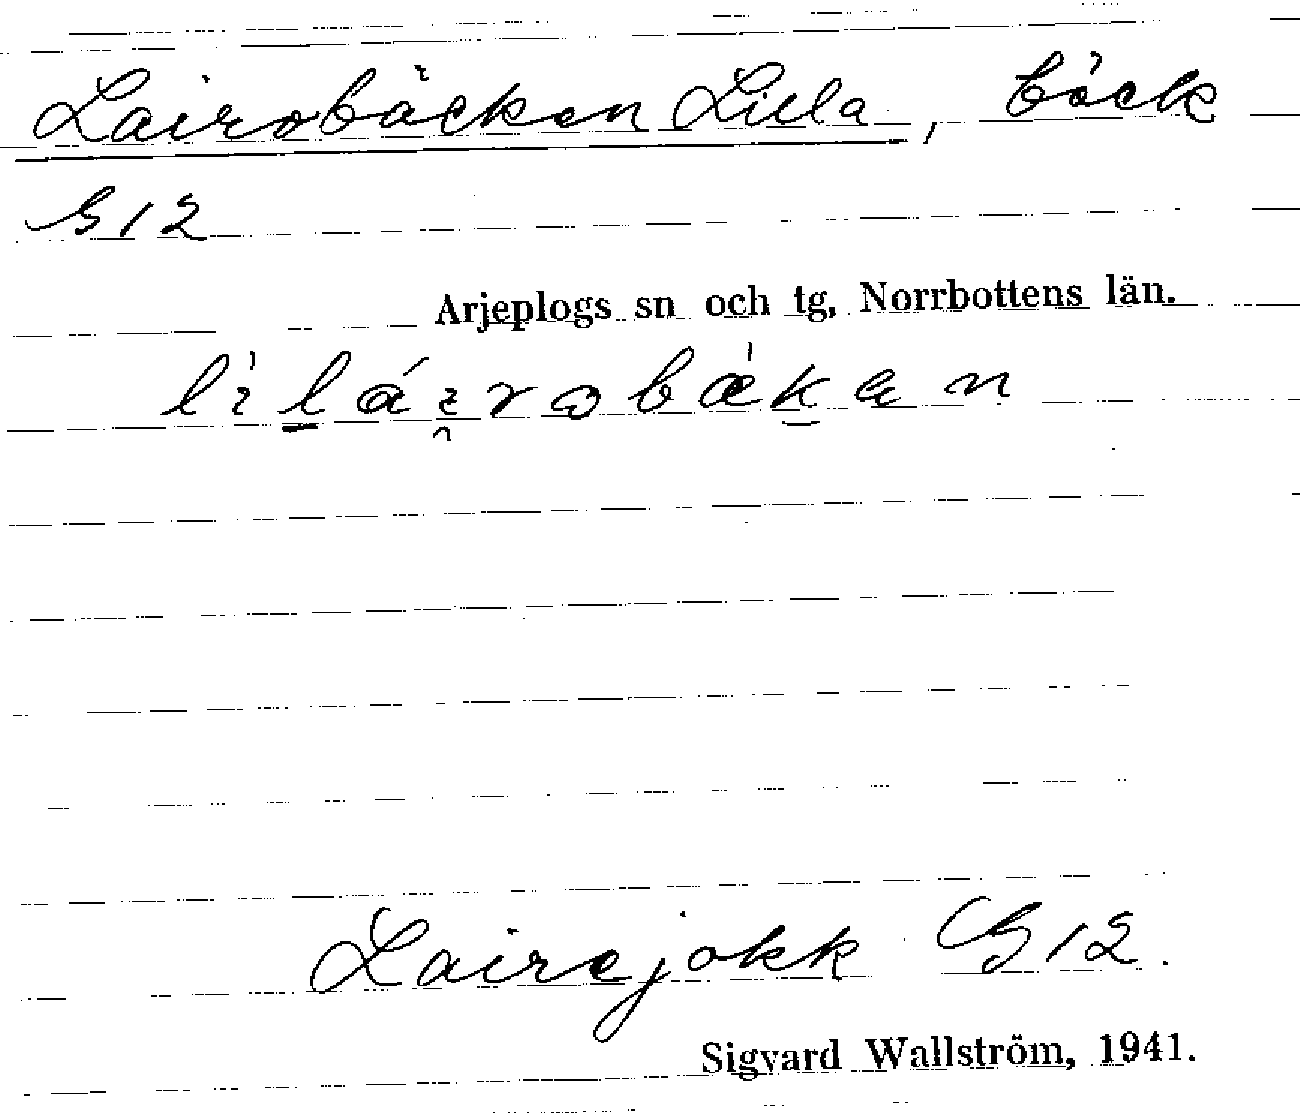 Lairobäcken Lilla, bäck
G12
Arjeplogs sn och tg, Norrbottens län.
Lairejokk G12.
Sigvard Wallström, 1941.